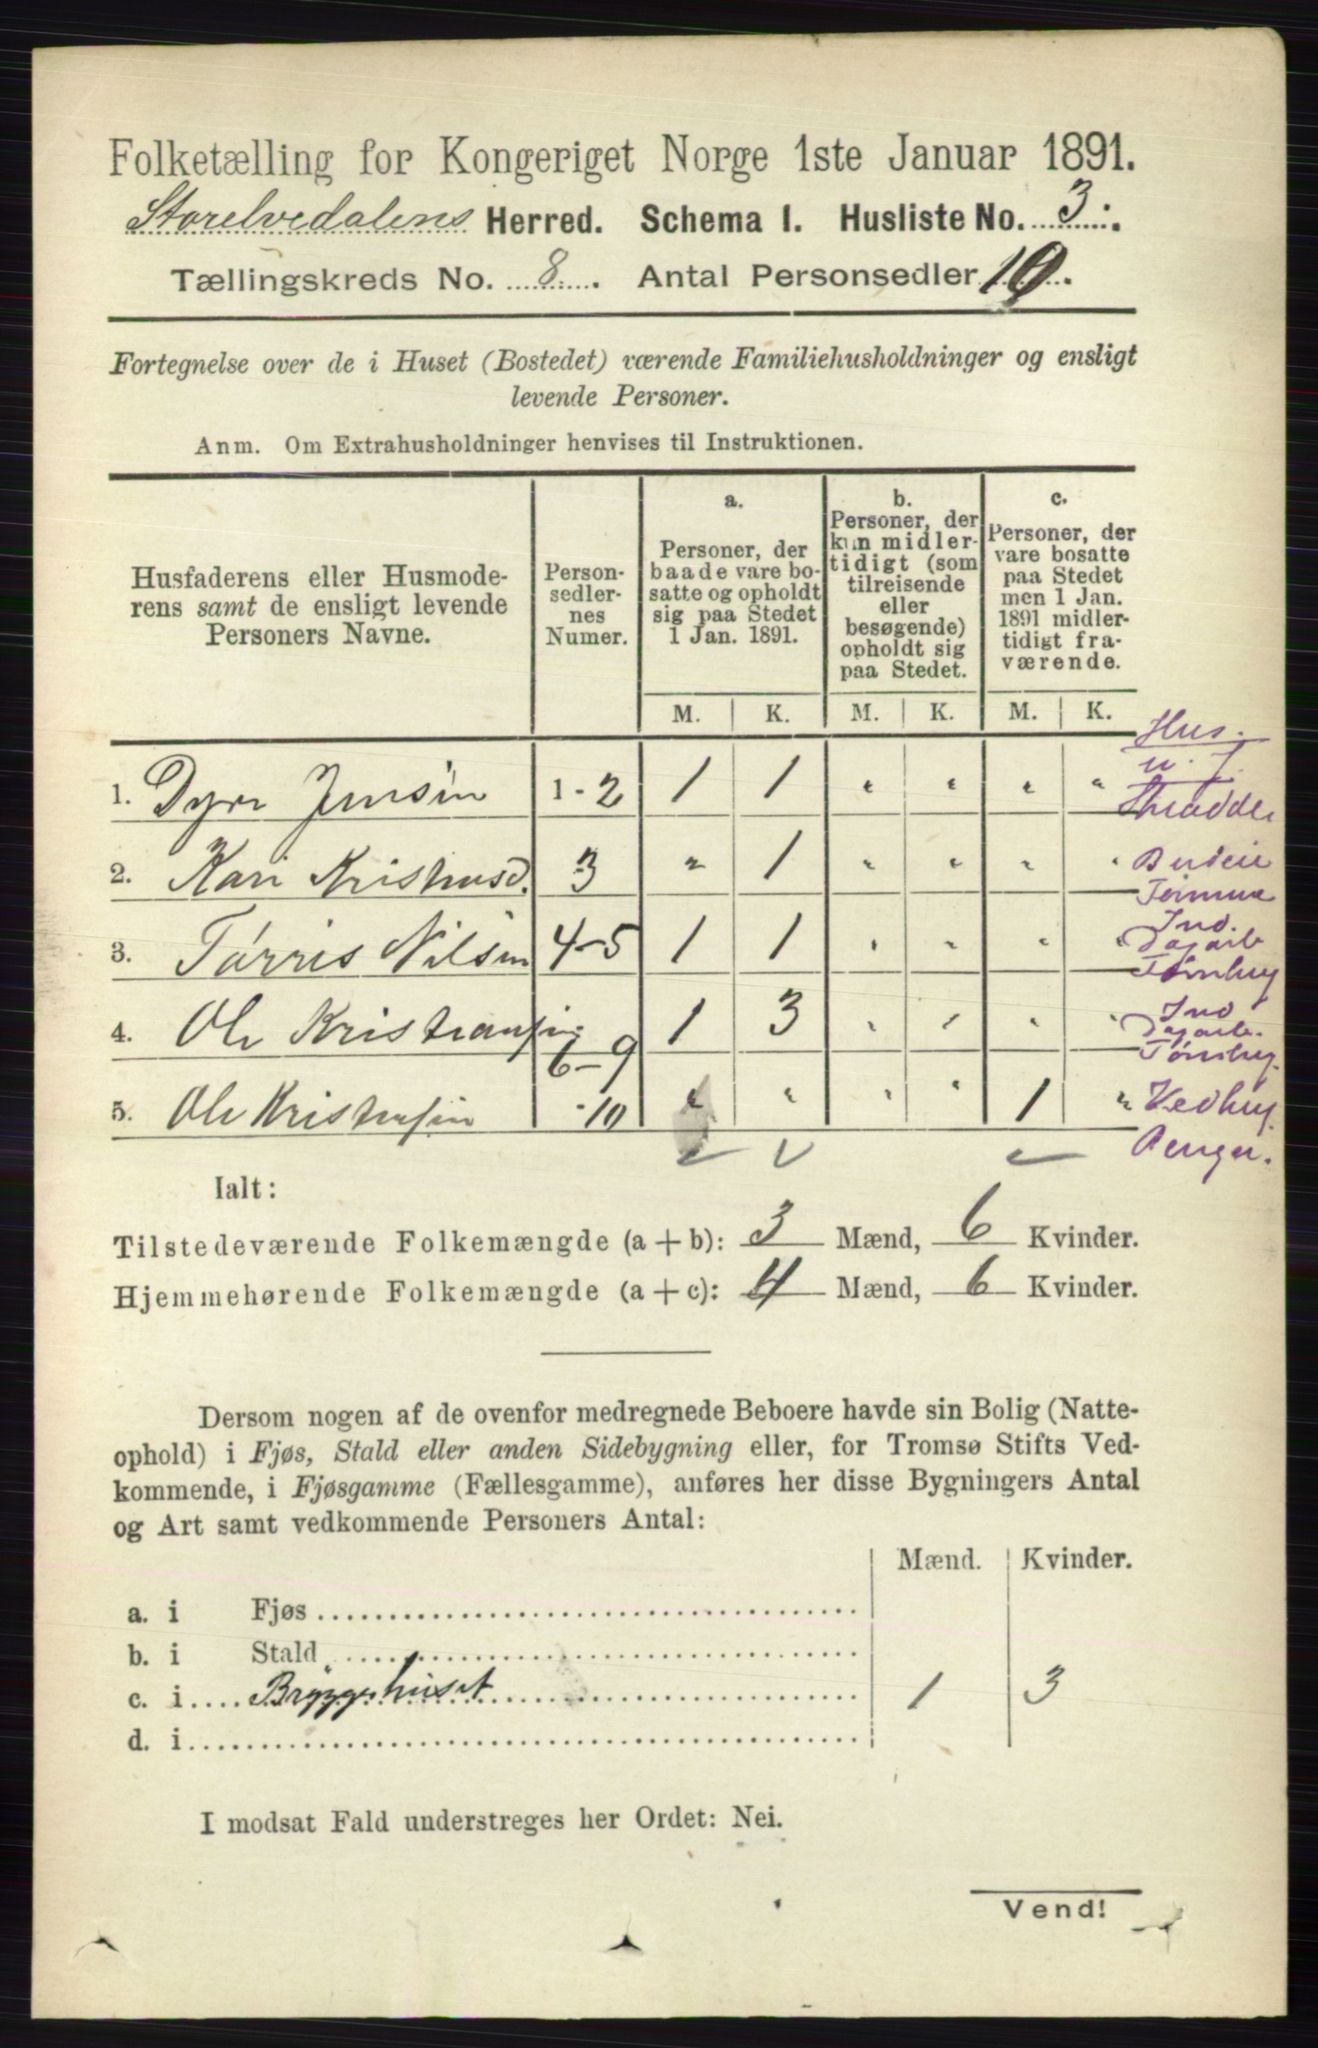 Folketælling for Kongeriget Norge 1ste Januar 1891.
Storelvedalens Herred. Schema I. Husliste No. 3.
Tællingskreds No. 8. Antal Personsedler 10.
Fortegnelse over de i Huset (Bostedet) værende Familiehusholdninger og ensligt
levende Personer.
Anm. Om Extrahusholdninger henvises til Instruktionen.
Husfaderens eller Husmode-
rens samt de ensligt levende
Personers Navne.
Person-
sedler-
nes
Numer.
a.
Personer, der
baade vare bo-
satte og opholdt
sig paa Stedet
1 Jan. 1891.
b.
Personer, der
kun midler-
tidigt (som
tilreisende
eller
besøgende)
opholdt sig
paa Stedet.
c.
Personer, der
vare bosatte
paa Stedet
men 1 Jan.
1891 midler-
tidigt fra-
værende.
M. K. M. K. M. K.
Hus.
1. Dyre Jensen 1-2 1 1 " " " "
2. Kari Kristiansd. 3 " 1 " " " " Budeie
3. Tørris Nilsen 4-5 1 1 " " " " Ind. Dagarb
Tømhug
4. Ole Kristiansen 6-9 1 3 " " " " Ind Dagarb.
Tømhug.
5. Ole Kristiansen -10 " " " " 1 " Vedhug.
Ialt:
Tilstedeværende Folkemængde (a + b): 3 Mænd, 6 Kvinder.
Hjemmehørende Folkemængde (a + c): 4 Mænd, 6 Kvinder.
Dersom nogen af de ovenfor medregnede Beboere havde sin Bolig (Natte-
ophold) i Fjøs, Stald eller anden Sidebygning eller, for Tromsø Stifts Ved-
kommende, i Fjøsgamme (Fællesgamme), anføres her disse Bygningers Antal
og Art samt vedkommende Personers Antal:
Mænd. Kvinder.
a. i Fjøs
b. i Stald
c. i Bryggehuset 1 3
d. i
I modsat Fald understreges her Ordet: Nei.
Vend!